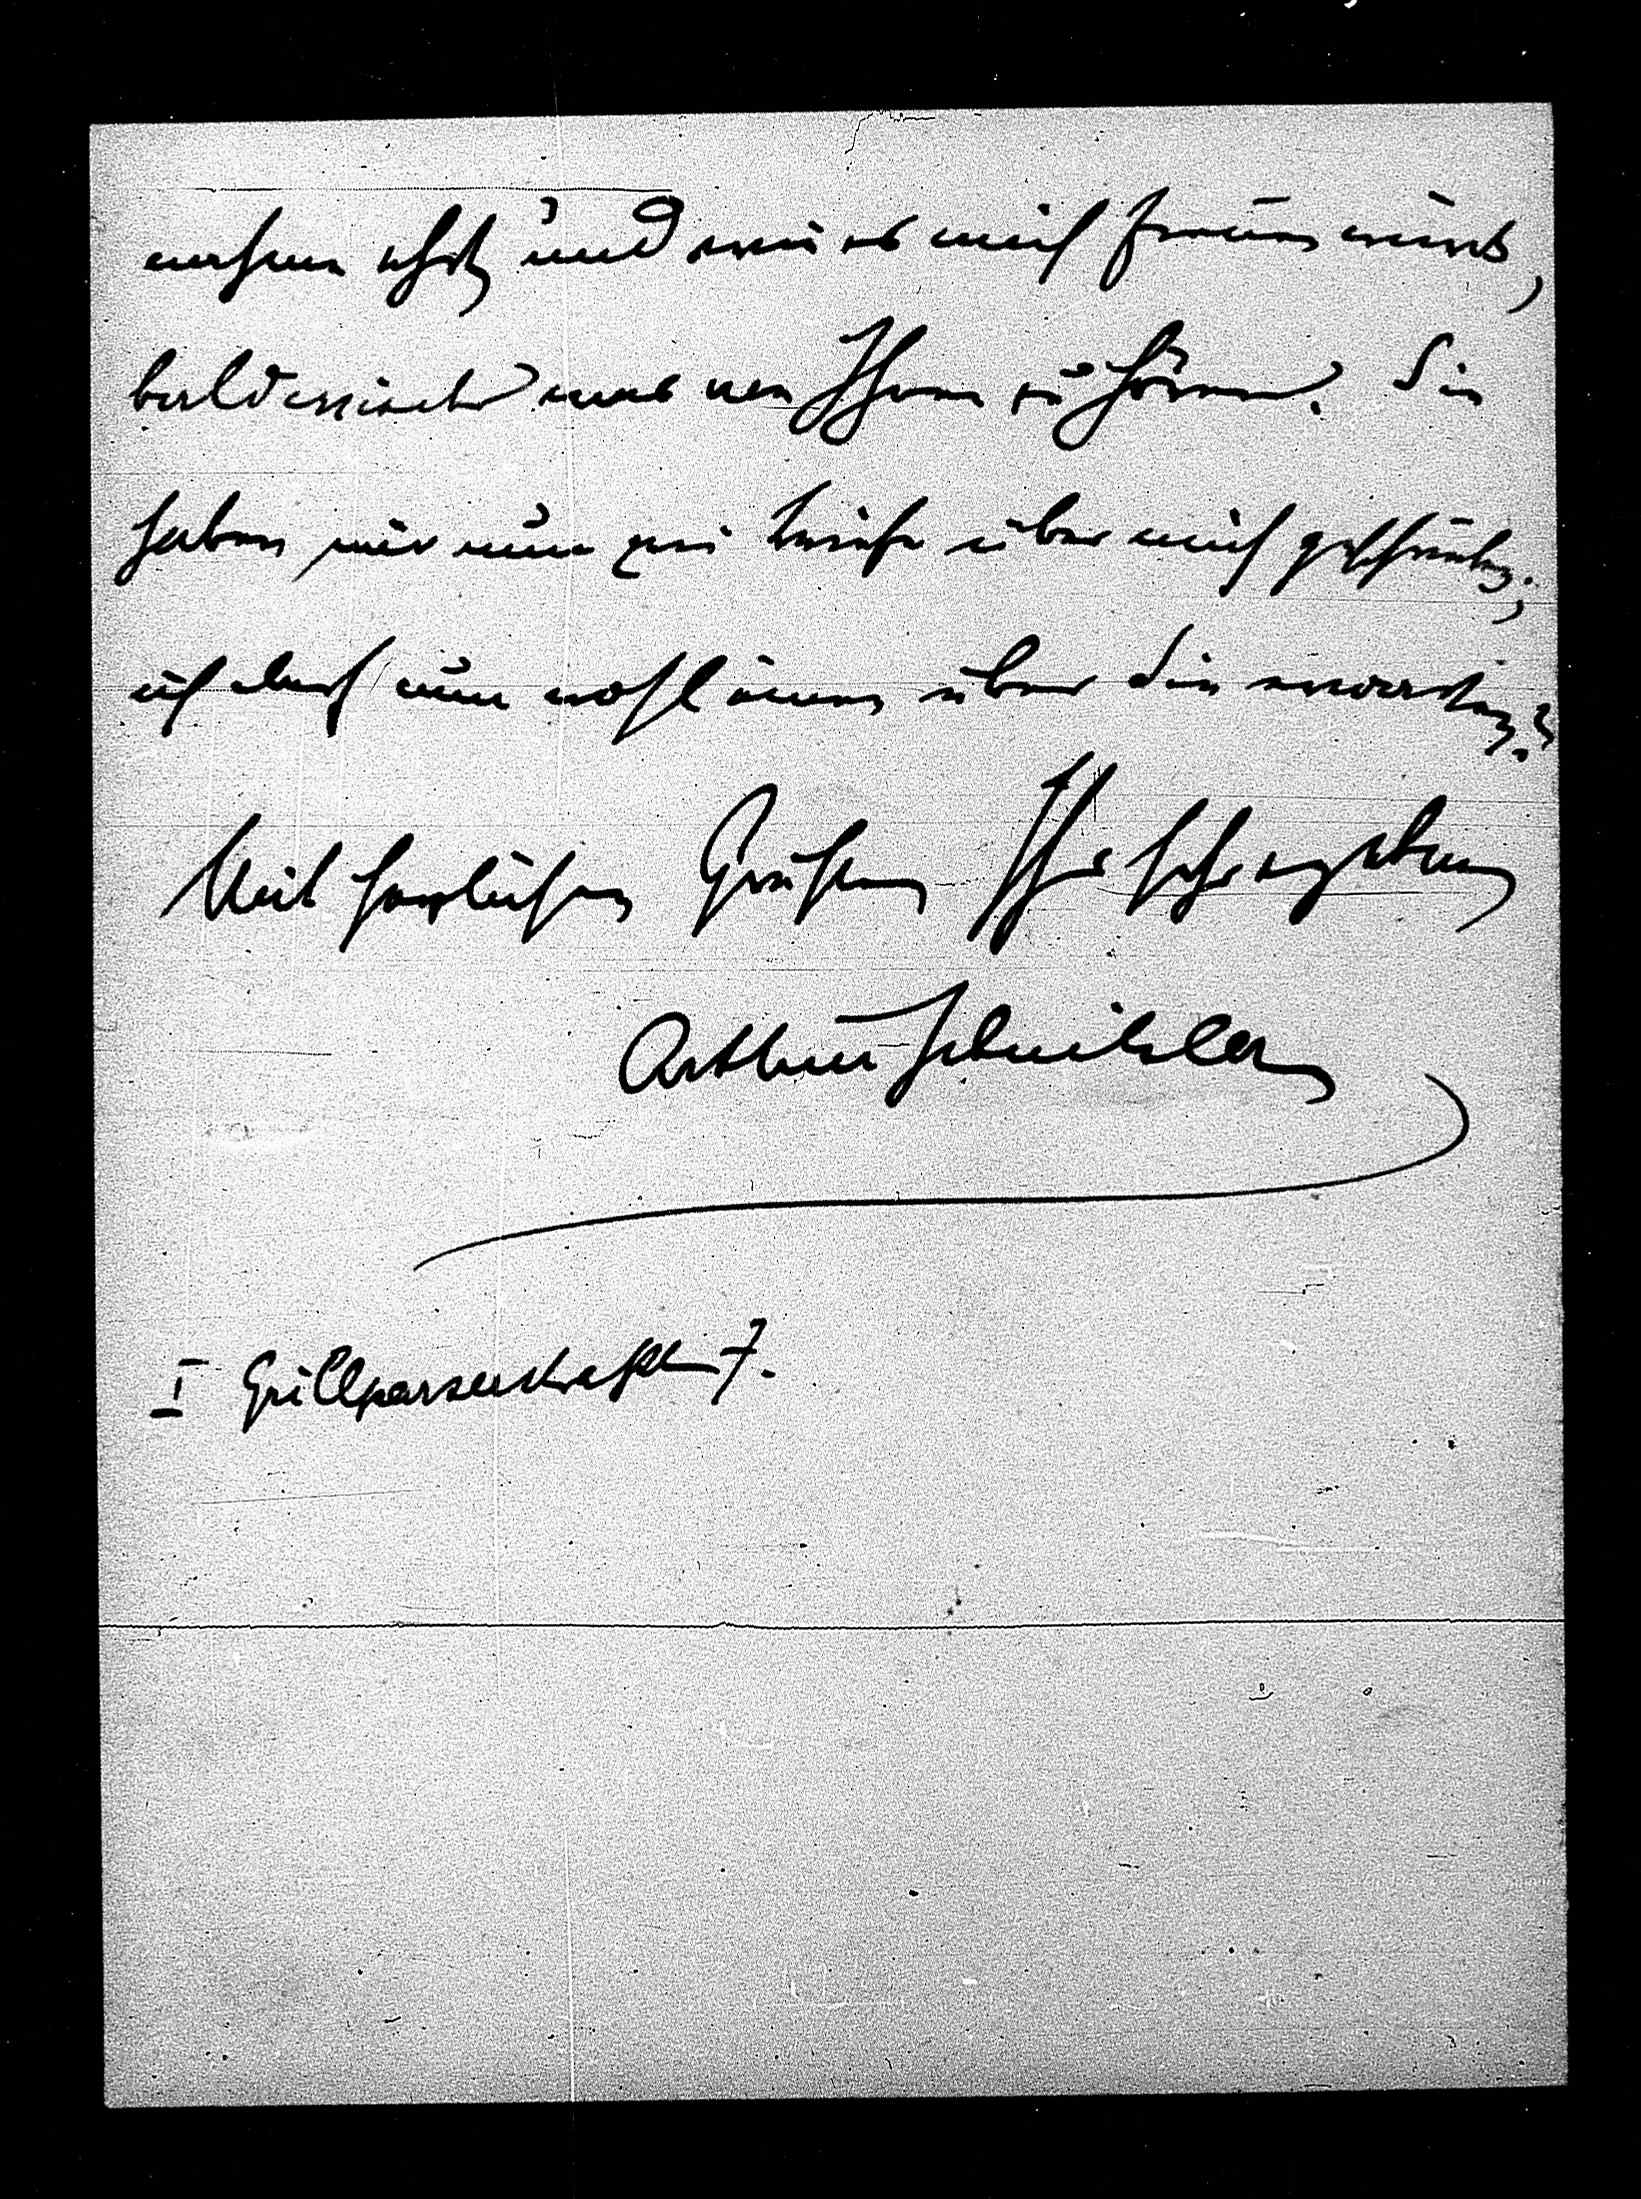 nehmen        und wie es mich freuen würde,
bald wieder was von Ihnen zu hören. Sie
haben mir nun zwei Briefe über mich geschrieben;
ich darf nun wohl einen über Sie erwarten?
Mit herzlichen Grüßen Ihr sehr ergebener
Arthur Schnitzler
I Grillparzerstraße 7.